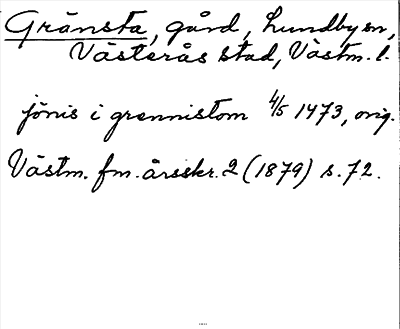 Gränsta, gård, Lundby sn,
Västerås stad, Västm. l.
jönis i grennistom 4/5 1473, orig.
Västm. fm. årsskr. 2 (1879) s. 72.